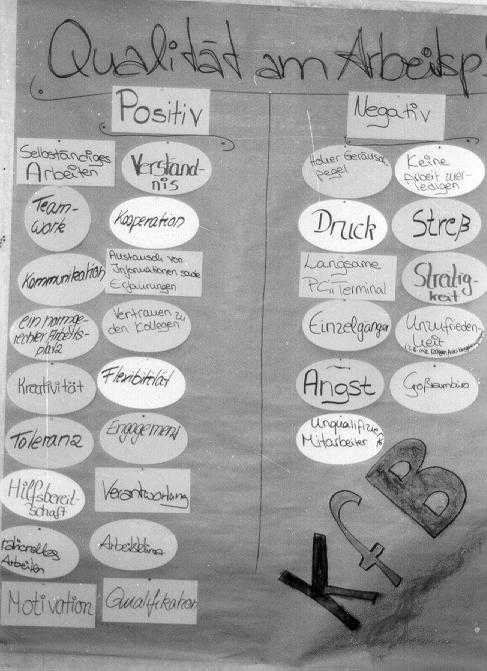 Qualität am Arbeitsp
Positiv
Selbständiges
Arbeiten
Verständ-
nis
Team-
work
Kooperation
Kommunikation
Austausch von
Informationen sowie
Erfahrungen
ein normge-
rechter Arbeits-
platz
Vertrauen zu
den Kollegen
Kreativität
Flexibilität
Toleranz
Engagement
Hilfsbereit-
schaft
Verantwortung
rationelles
Arbeiten
Arbeitsklima
Motivation
Qualifikation
Negativ
Hoher Geräusch
pegel
Keine
Arbeit zu er-
ledigen
Druck
Streß
Langsame
PC's Terminal
Strutig-
keit
Einzelgänger
Unzufrieden-
heit
Angst
Großraumbüro
Unqualifizierte
Mitarbeiter
KfB